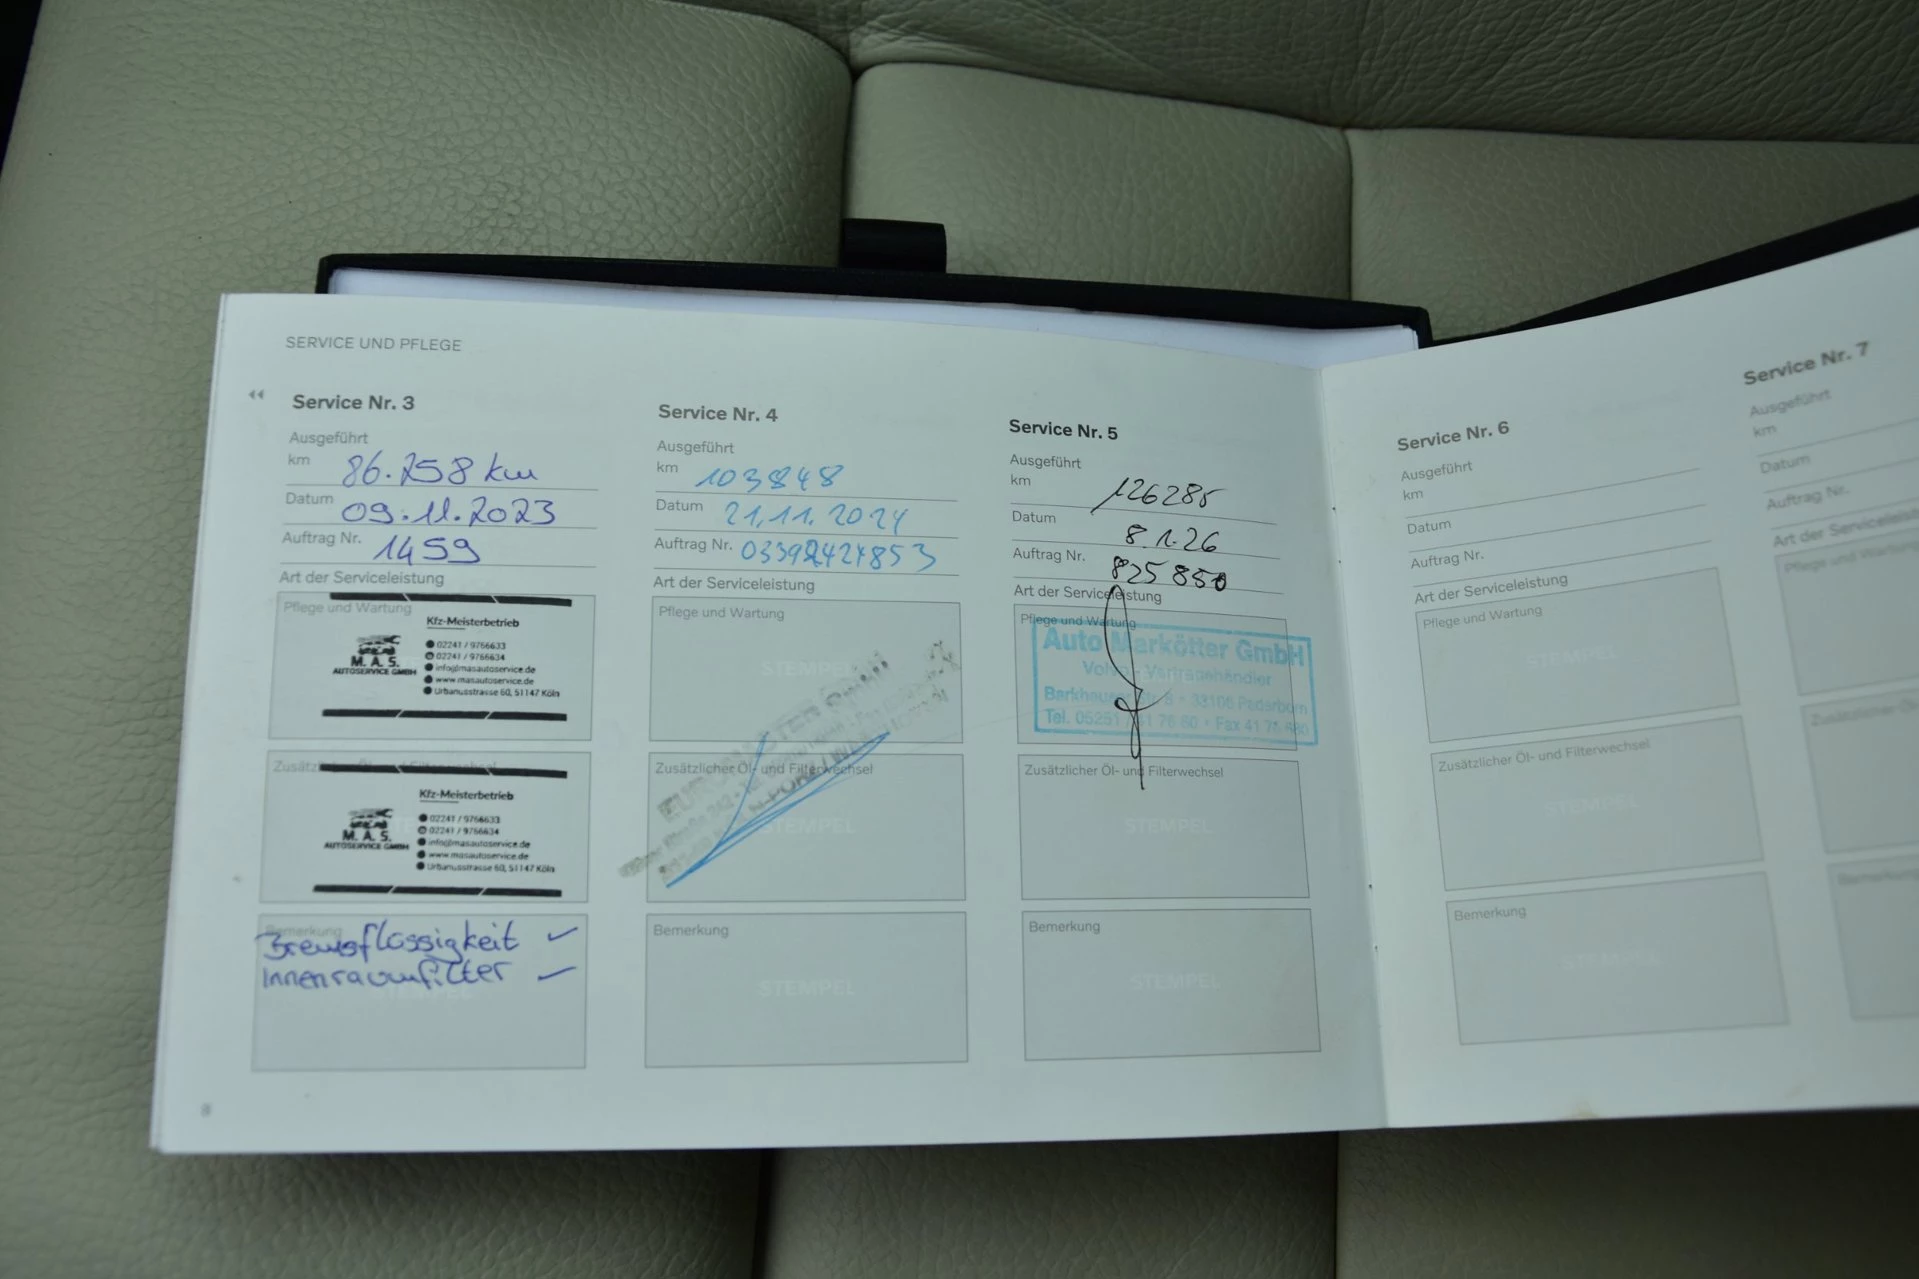 SERVICE UND PFLEGE
Service Nr. 3
Ausgeführt
km 86.258 km
Datum 09.11.2023
Auftrag Nr. 1459
Art der Serviceleistung
Pflege und Wartung
Kfz-Meisterbetrieb
02241 / 9766633
02241 / 9766634
info@masautoservice.de
www.masautoservice.de
Urbanusstrasse 60, 51147 Köln
M. A. S.
AUTOSERVICE GMBH
Zusätzlicher Öl- und Filterwechsel
Kfz-Meisterbetrieb
02241 / 9766633
02241 / 9766634
info@masautoservice.de
www.masautoservice.de
Urbanusstrasse 60, 51147 Köln
M. A. S.
AUTOSERVICE GMBH
Bemerkung
Bremsflüssigkeit ✓
Innenraumfilter ✓
STEMPEL
8
Service Nr. 4
Ausgeführt
km 103848
Datum 21.11.2024
Auftrag Nr.
Art der Serviceleistung
Pflege und Wartung
STEMPEL
EUROMASTER GmbH
Zusätzlicher Öl- und Filterwechsel
STEMPEL
Bemerkung
STEMPEL
Service Nr. 5
Ausgeführt
km 126285
Datum 8.1.26
Auftrag Nr. 825850
Art der Serviceleistung
Pflege und Wartung
Auto Markötter GmbH
Volvo - Vertragshändler
Barkhauser Str. 8 - 33106 Paderborn
Tel. 05251 / 41 76 60 • Fax 41 76 680
Zusätzlicher Öl- und Filterwechsel
STEMPEL
Bemerkung
STEMPEL
Service Nr. 6
Ausgeführt
km
Datum
Auftrag Nr.
Art der Serviceleistung
Pflege und Wartung
STEMPEL
Zusätzlicher Öl- und Filterwechsel
STEMPEL
Bemerkung
STEMPEL
Service Nr. 7
Ausgeführt
km
Datum
Auftrag Nr.
Art der Serviceleist
Pflege und War
Zusätzlicher Öl
Bemerkung